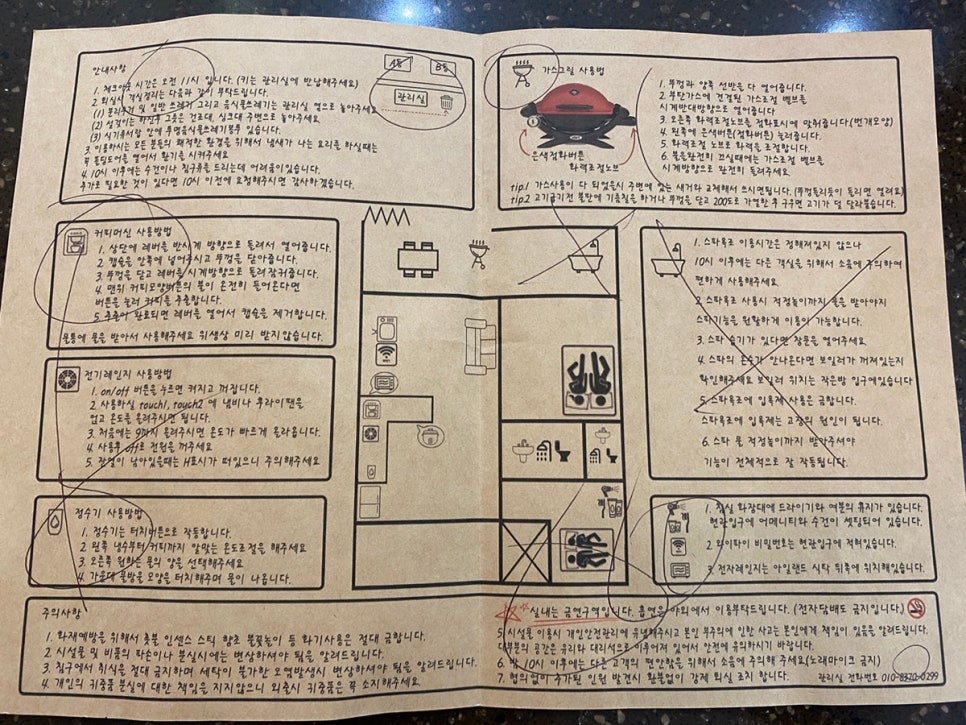 안내사항
1. 체크아웃 시간은 오전 11시 입니다. (키는 관리실에 반납해주세요)
2. 퇴실시 객실정리는 다음과 같이 부탁드립니다.
(1) 분리수거 및 일반 쓰레기 그리고 음식물쓰레기는 관리실 옆으로 놓아주세요.
(2) 설거지는 하신후 그릇은 건조대, 싱크대 주변으로 놓아주세요.
(3) 식기서랍 안에 투명음식물쓰레기봉투 있습니다.
3. 이용하시는 모든 분들의 쾌적한 환경을 위해서 냄새가 나는 요리를 하실때는
꼭 폴딩도어를 열어서 환기를 시켜주세요
4. 10시 이후에는 수건이나 침구류를 드리는데 어려움이있습니다.
추가로 필요한 것이 있다면 10시 이전에 요청해주시면 감사하겠습니다.
A동
B동
관리실
가스그릴 사용법
은색점화버튼
화력조절노브
1. 뚜껑과 양쪽 선반은 다 열어줍니다.
2. 부탄가스에 연결된 가스조절 밸브를
시계반대방향으로 열어줍니다
3. 오른쪽 화력조절노브를 점화표시에 맞춰줍니다(번개모양)
4. 왼쪽에 은색버튼(점화버튼) 눌러줍니다.
5. 화력조절 노브로 화력을 조절합니다.
6. 불을완전히 끄실때에는 가스조절 밸브를
시계방향으로 완전히 돌려주세요.
tip.1 가스사용이 다 되었을시 주변에 있는 새거와 교체해서 쓰시면됩니다. (뚜껑돌리듯이 돌리면 열려요)
tip.2 고기굽기전 불판에 기름칠을 하거나 뚜껑을 닫고 200도로 가열한 후 구우면 고기가 덜 달라붙습니다.
커피머신 사용방법
1. 상단에 레버를 반시계 방향으로 돌려서 열어줍니다.
2. 캡슐을 안쪽에 넣어주시고 뚜껑을 닫아줍니다.
3. 뚜껑을 닫고 레버를 시계방향으로 돌려잠궈줍니다.
4. 맨위 커피모양버튼의 불이 온전히 들어온다면
버튼을 눌러 커피를 추출합니다.
5. 추출이 완료되면 레버를 열어서 캡슐을 제거합니다.
물통에 물을 받아서 사용해주세요 위생상 미리 받지않습니다.
전기레인지 사용방법
1. on/off 버튼을 누르면 켜지고 꺼집니다.
2. 사용하실 touch1, touch2 에 냄비나 후라이팬을
얹고 온도를 올려주시면 됩니다.
3. 처음에는 9까지 올려주시면 온도가 빠르게 올라옵니다.
4. 사용후 off로 전원을 꺼주세요
5. 잔열이 남아있을때는 H표시가 떠있으니 주의해주세요
정수기 사용방법
1. 정수기는 터치버튼으로 작동합니다.
2. 왼쪽 냉수부터 커피까지 알맞는 온도조절을 해주세요
3. 오른쪽 원하는 물의 양을 선택해주세요
4. 가운데 물방울 모양을 터치해주며 물이 나옵니다.
1. 스파욕조 이용시간은 정해져있지 않으나
10시 이후에는 다른 객실을 위해서 소음에 주의하여
편하게 사용해주세요.
2. 스파욕조 사용시 적정높이까지 물은 받아야지
스파기능을 원활하게 이용이 가능합니다.
3. 스파 습기가 있다면 창문을 열어주세요.
4. 스파의 온수가 안나온다면 보일러가 꺼져있는지
확인해주세요 보일러 위치는 작은방 입구에있습니다
5. 스파욕조에 입욕제 사용은 금합니다.
스파욕조에 입욕제는 고장의 원인이 됩니다.
6. 스파 물 적정높이까지 받아주셔야
기능이 전체적으로 잘 작동됩니다.
1. 침실 화장대에 드라이기와 여분의 휴지가 있습니다.
현관입구에 어메니티와 수건이 셋팅되어 있습니다.
2. 와이파이 비밀번호는 현관입구에 적혀있습니다.
3. 전자레인지는 아일랜드 식탁 뒤쪽에 위치해있습니다
주의사항
1. 화재예방을 위해서 촛불 인센스 스틱 향초 불꽃놀이 등 화기사용은 절대 금합니다.
2. 시설물 및 비품의 파손이나 분실시에는 변상하셔야 됨을 알려드립니다.
3. 침구에서 취식을 절대 금지하며 세탁이 불가한 오염발생시 변상하셔야 됨을 알려드립니다.
4. 개인의 귀중품 분실에 대한 책임을 지지않으니 외출시 귀중품은 꼭 소지해주세요.
실내는 금연구역입니다. 흡연은 야외에서 이용부탁드립니다. (전자담배도 금지입니다)
5. 시설물 이용시 개인안전관리에 유념해주시고 본인 부주의에 인한 사고는 본인에게 책임이 있음을 알려드립니다.
대부분의 공간은 유리와 대리석으로 이루어져 있어서 안전에 유의하시기 바랍니다.
6. 밤 10시 이후에는 다른 고객의 편안함을 위해서 소음에 주의해 주세요(노래마이크 금지)
7. 협의없이 추가된 인원 발견시 환불없이 강제 퇴실 조치 합니다.
관리실 전화번호 010-8370-0299